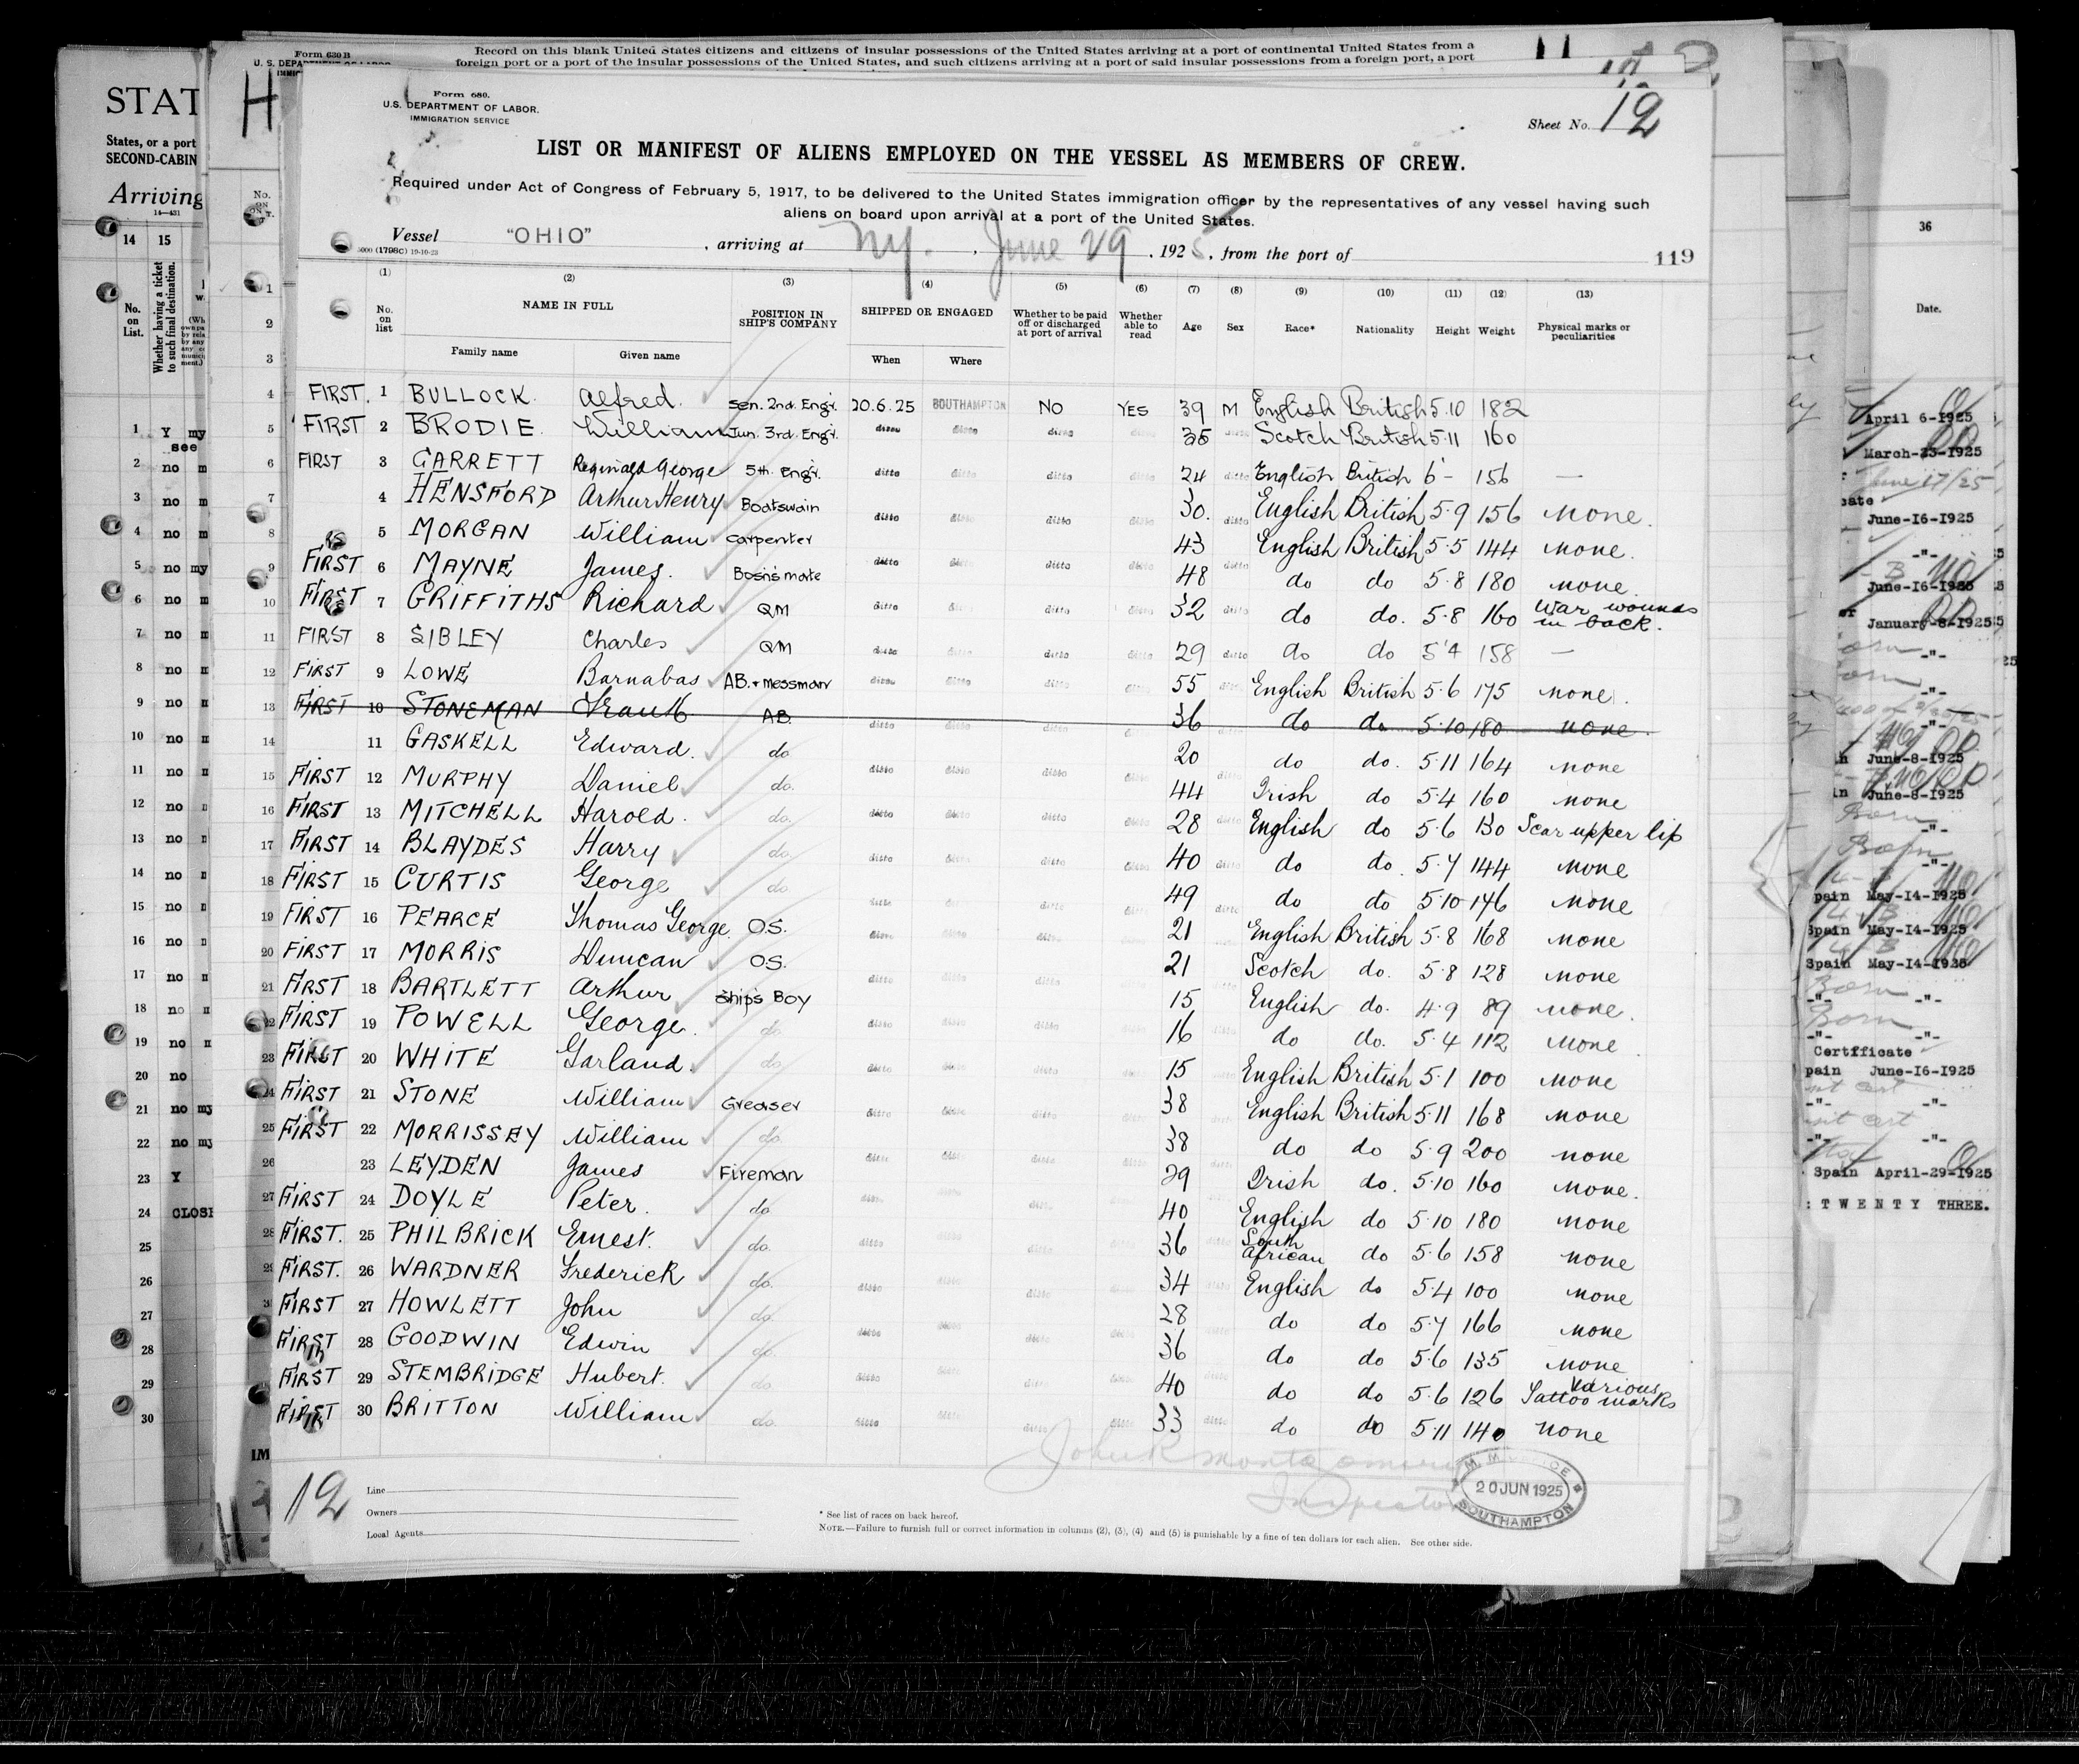 Form 630 B
U. S. DEPARTMENT OF LABOR
Record on this blank United States citizens and citizens of insular possessions of the United States arriving at a port of continental United States from a
foreign port or a port of the insular possessions of the United States, and such citizens arriving at a port of said insular possessions from a foreign port, a port
11
STAT
States, or a port
SECOND-CABIN
Arriving
14—431
H
Form 680.
U.S. DEPARTMENT OF LABOR.
IMMIGRATION SERVICE
Sheet No. 12
LIST OR MANIFEST OF ALIENS EMPLOYED ON THE VESSEL AS MEMBERS OF CREW.
Required under Act of Congress of February 5, 1917, to be delivered to the United States immigration officer by the representatives of any vessel having such
aliens on board upon arrival at a port of the United States.
Vessel "OHIO", arriving at Ny., June 29, 1925, from the port of
5000 (1798C) 19-10-23
119
(1) (2) (3) (4) (5) (6) (7) (8) (9) (10) (11) (12) (13)
No. on list NAME IN FULL POSITION IN SHIP'S COMPANY SHIPPED OR ENGAGED Whether to be paid off or discharged at port of arrival Whether able to read Age Sex Race* Nationality Height Weight Physical marks or peculiarities
Family name Given name When Where
FIRST. 1 BULLOCK. Alfred. Sen. 2nd. Engr. 20.6.25 SOUTHAMPTON NO YES 39 M English British 5.10 182
FIRST 2 BRODIE. William Jun. 3rd. Engr. ditto ditto ditto 35 Scotch British 5.11 160
FIRST 3 GARRETT Reginald George 5th. Engr. ditto ditto ditto ditto 24 ditto English British 6 - 156 —
4 HENSFORD Arthur Henry Boatswain ditto ditto ditto ditto 30. ditto English British 5.9 156 none.
5 MORGAN William carpenter ditto ditto ditto ditto 43 ditto English British 5.5 144 none.
FIRST 6 MAYNE James. Bosn's mate ditto ditto ditto ditto 48 ditto do do 5.8 180 none.
FIRST 7 GRIFFITHS Richard QM ditto ditto ditto ditto 32 ditto do do. 5.8 160 War wounds in back.
FIRST 8 SIBLEY Charles QM ditto ditto ditto ditto 29 ditto do do 5'4 158 —
FIRST 9 LOWE Barnabas AB. + Messman ditto ditto ditto ditto 55 English British 5.6 175 none.
FIRST 10 STONEMAN Frank AB. ditto ditto ditto 36 do do 5.10 180 none.
11 GASKELL Edward. do ditto ditto ditto 20 do do. 5.11 164 none
FIRST 12 MURPHY Daniel do. ditto ditto ditto 44 Irish do 5.4 160 none
FIRST 13 MITCHELL Harold. do. ditto ditto ditto 28 English do 5.6 130 Scar upper lip
FIRST 14 BLAYDES Harry do. ditto ditto ditto 40 do do. 5.7 144 none
FIRST 15 CURTIS George do ditto ditto ditto 49 do do 5.10 146 none
FIRST 16 PEARCE Thomas George. O.S. ditto ditto ditto 21 English British 5.8 168 none
FIRST 17 MORRIS Duncan OS. ditto ditto ditto 21 Scotch do. 5.8 128 none
FIRST 18 BARTLETT Arthur Ship's Boy ditto ditto ditto 15 English do. 4.9 89 none.
FIRST 19 POWELL George. do. ditto ditto ditto 16 do do. 5.4 112 none
FIRST 20 WHITE Garland. do ditto ditto ditto 15 English British 5.1 100 none
FIRST 21 STONE William Greaser ditto ditto ditto 38 English British 5.11 168 none
FIRST 22 MORRISSEY William do. ditto ditto ditto 38 do do 5.9 200 none
23 LEYDEN James Fireman ditto ditto ditto 29 Irish do. 5.10 160 none.
FIRST 24 DOYLE Peter. do ditto ditto 40 English do 5.10 180 none
FIRST. 25 PHILBRICK Ernest. do. ditto ditto ditto 36 South African do 5.6 158 none
FIRST. 26 WARDNER Frederick do. ditto ditto ditto 34 English do 5.4 100 none
FIRST 27 HOWLETT John do. ditto ditto ditto 28 do do 5.7 166 none
FIRST 28 GOODWIN Edwin do. ditto ditto ditto 36 do do 5.6 135 none
FIRST 29 STEMBRIDGE Hubert. do. ditto ditto ditto 40 do do 5.6 126 Various Tattoo marks
FIRST 30 BRITTON William do. ditto ditto ditto 33 do do 5.11 140 none
John R Montgomery
Inspector
20 JUN 1925
SOUTHAMPTON
12
Line
Owners
Local Agents
* See list of races on back hereof.
NOTE.—Failure to furnish full or correct information in columns (2), (3), (4) and (5) is punishable by a fine of ten dollars for each alien. See other side.
36
Date.
April 6-1925
March-23-1925
June 17/25
June-16-1925
-"-
June-16-1925
January-8-1925
-"-
-"-
-"-
June-8-1925
June-8-1925
-"-
pain May-14-1925
Spain May-14-1925
Spain May-14-1925
Born
-"- -"-
Born
-"- -"-
Certificate
pain June-16-1925
-"- -"-
-"- -"-
Spain April-29-1925
: TWENTY THREE.